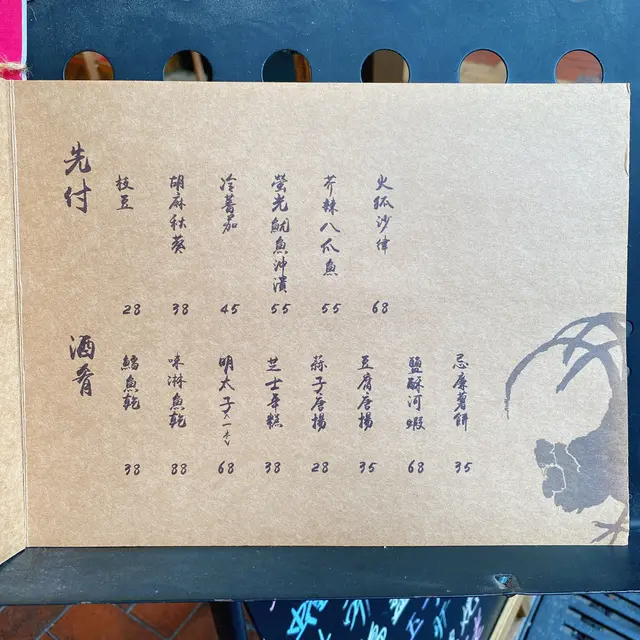 先付
枝豆 28
胡麻秋葵 38
冷蕃茄 45
螢光魷魚沖漬 55
芥辣八爪魚 55
火狐沙律 68
酒肴
鱈魚乾 38
味淋魚乾 88
明太子(一本) 68
芝士年糕 38
蒜子唐揚 28
豆腐唐揚 35
鹽酥河蝦 68
忌廉薯餅 35